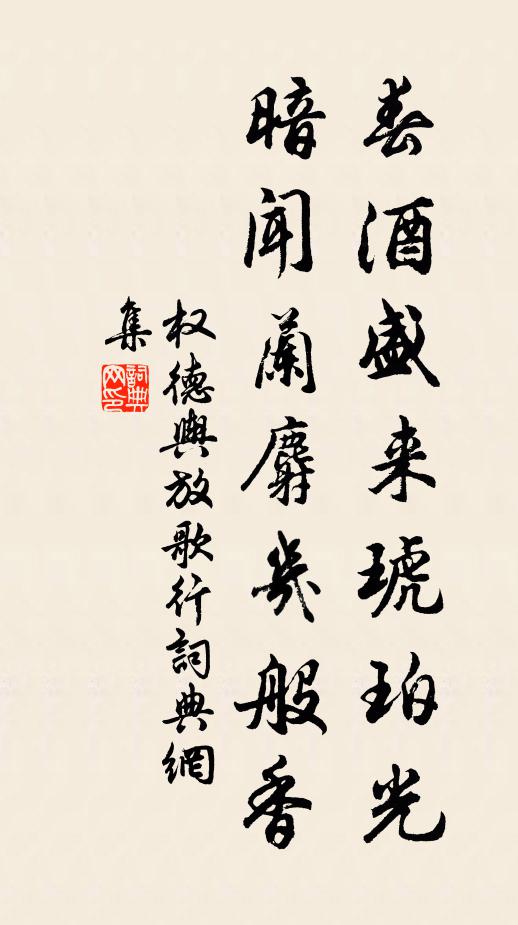 春酒盛来琥珀光
暗闻兰麝几般香
权德舆放歌行詞典網
集
詞典
网印